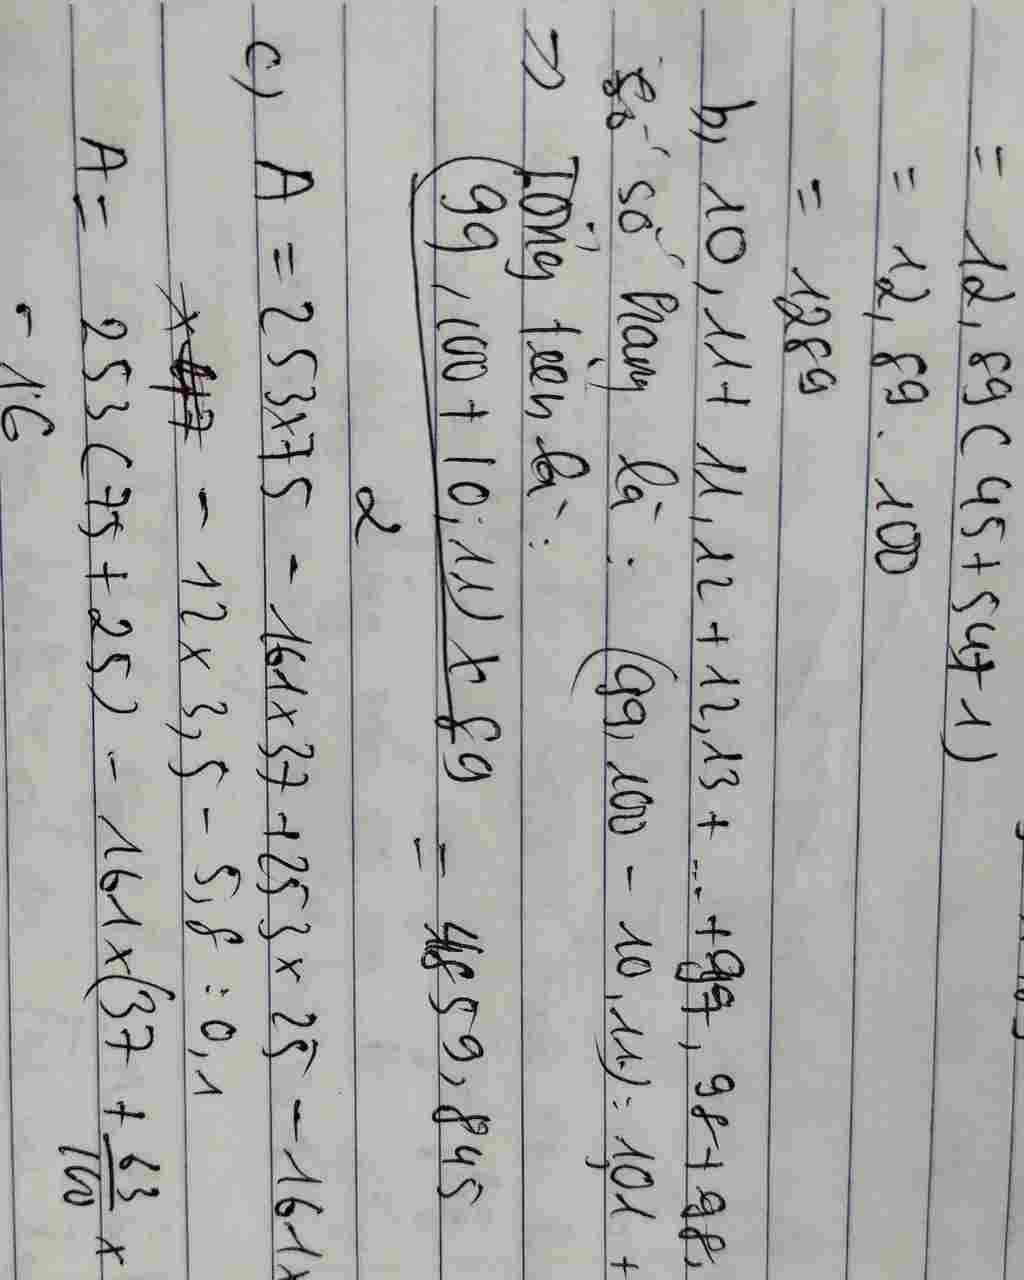 = 12,89 (45+54+1)
= 12,89 . 100
= 1289
b, 10,11+ 11,12 + 12,13 + ... +97,98+98,
số số hạng là : (99,100 - 10,11): 1,01 +
=> Tổng trên là :
(99,100 + 10,11) x 89 = 4859,845
2
c) A = 253x75 - 161x37+253x25 - 161x
- 12x3,5 - 5,8 : 0,1
A = 253(75+25) - 161x(37 + 63/100 x
- 16